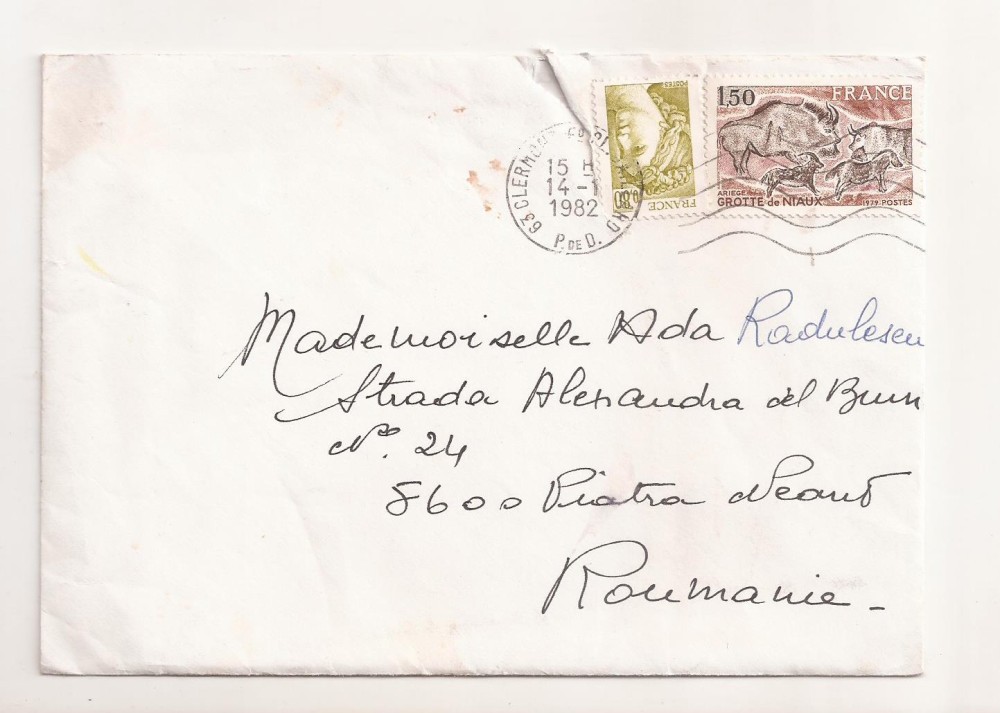 POSTES
0,80
FRANCE
1,50 FRANCE
ARIEGE
GROTTE de NIAUX 1979 POSTES
63 CLERMONT
15 H
14-1
1982
P. DE D.
Mademoiselle Ada Radulescu
Strada Alexandra cel Bun
N° 24
8600 Piatra Neamt
Roumanie -